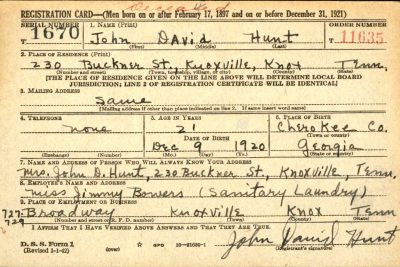 Deceased
REGISTRATION CARD—(Men born on or after February 17, 1897 and on or before December 31, 1921)
SERIAL NUMBER 1. NAME (Print) ORDER NUMBER
T 1670 John David Hunt T 11635
(First) (Middle) (Last)
2. PLACE OF RESIDENCE (Print)
230 Buckner St., Knoxville, Knox Tenn.
(Number and street) (Town, township, village, or city) (County) (State)
[THE PLACE OF RESIDENCE GIVEN ON THE LINE ABOVE WILL DETERMINE LOCAL BOARD
JURISDICTION; LINE 2 OF REGISTRATION CERTIFICATE WILL BE IDENTICAL]
3. MAILING ADDRESS
Same
(Mailing address if other than place indicated on line 2. If same insert word same)
4. TELEPHONE 5. AGE IN YEARS 6. PLACE OF BIRTH
none 21 Cherokee Co.
DATE OF BIRTH (Town or county)
Dec 9 1920 Georgia
(Exchange) (Number) (Mo.) (Day) (Yr.) (State or country)
7. NAME AND ADDRESS OF PERSON WHO WILL ALWAYS KNOW YOUR ADDRESS
Mrs. John D. Hunt, 230 Buckner St., Knoxville, Tenn.
8. EMPLOYER'S NAME AND ADDRESS
Miss Jimmy Bowers (Sanitary Laundry)
9. PLACE OF EMPLOYMENT OR BUSINESS
727-729 Broadway Knoxville Knox Tenn
(Number and street or R. F. D. number) (Town) (County) (State)
I AFFIRM THAT I HAVE VERIFIED ABOVE ANSWERS AND THAT THEY ARE TRUE.
D. S. S. Form 1
(Revised 1-1-42) (over) John David Hunt
(Registrant's signature)